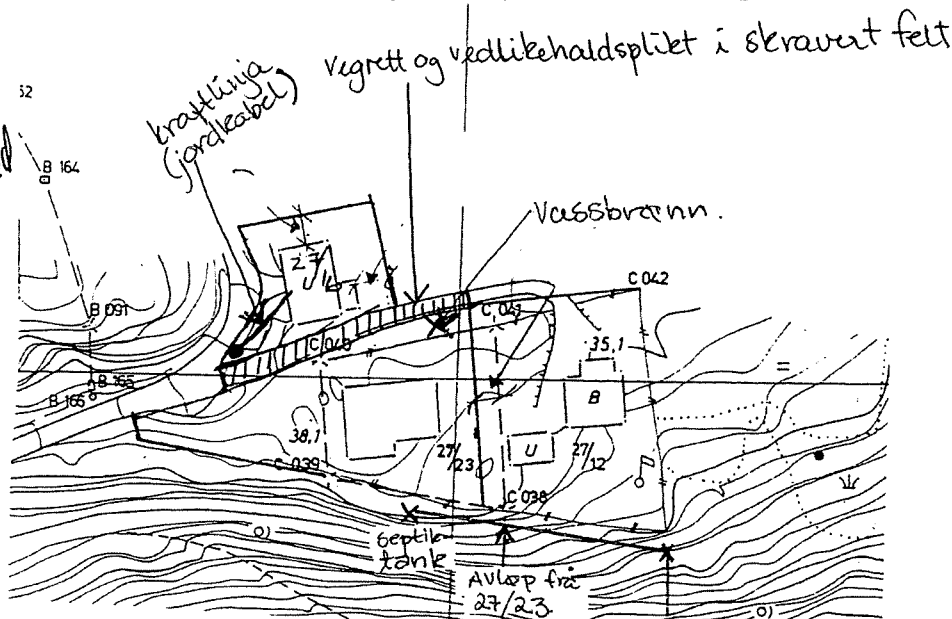 vegrett og vedlikehaldsplikt i skravert felt
kraftlinja
(jordkabel)
52
B 164
Vassbrønn.
C 042
B 091
C 041
C 040
35,1
B 165
B 166
B
38,1
27/23
U
27/12
C 039
C 038
septik-
tank
Avløp frå
27/23